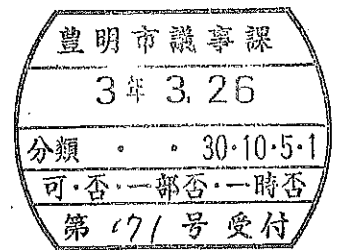 豊明市議事課
3年 3.26
分類 ・ ・ 30・10・5・1
可・否・一部否・一時否
第171号受付